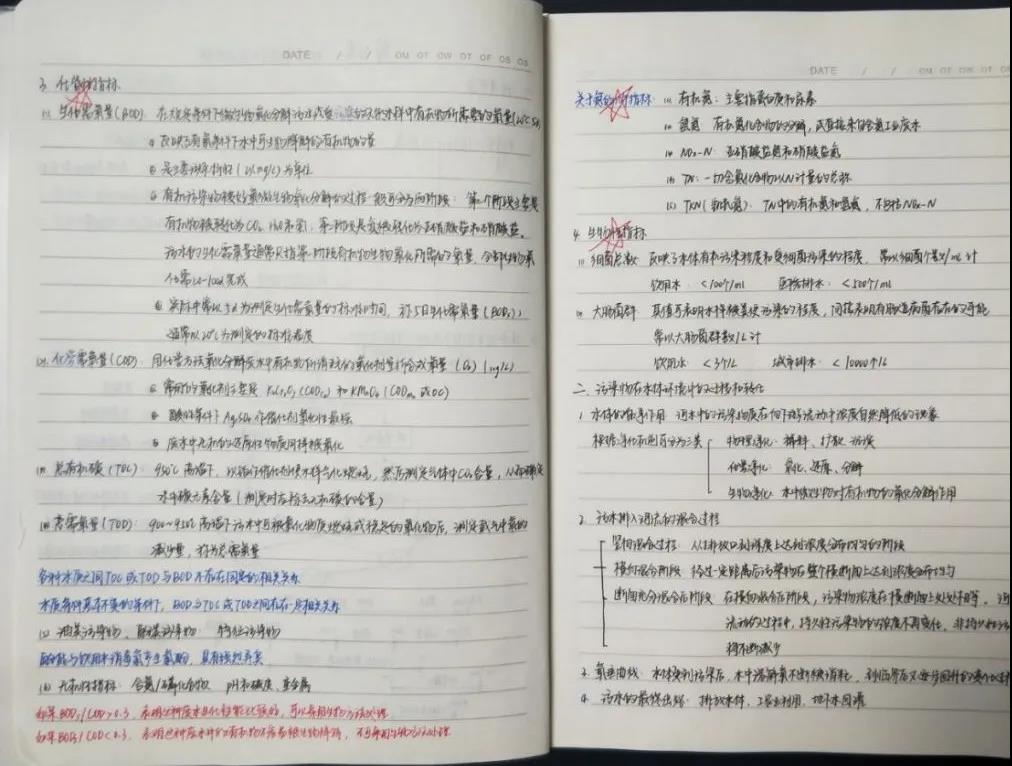 DATE / / OM OT OW OT OF OS OS
3. 化学性指标
(1) 生化需氧量(BOD): 在规定条件下微生物氧化分解污水或受污染的天然水样中有机物所需要的氧量(20℃ 5d)
反映出有氧条件下水中可生物降解的有机物的量
是主要污染特性(以mg/L)为单位
有机污染物被好氧微生物氧化分解的过程一般可分为两阶段: 第一个阶段主要是
有机物被转化为CO₂ H₂O和氨; 第二阶段是氨被转化为亚硝酸盐和硝酸盐。
污水的生化需氧量通常只指第一阶段有机物生物氧化所需的氧量, 全部生物氧
化需20-100d完成
实际中常以5d为测定生化需氧量的标准时间, 称5日生化需氧量(BOD₅)
通常以20℃为测定的标准温度
(2) 化学需氧量(COD): 用化学方法氧化分解废水中有机物所消耗的氧化剂量折合成氧量(O₂)(mg/L)
常用的氧化剂主要是 K₂Cr₂O₇(CODcr) 和 KMnO₄(CODmn 或OC)
酸性条件下 Ag₂SO₄作催化剂氧化性最强
废水中无机的还原性物质同样被氧化
总有机碳(TOC): 950℃高温下, 以铂作催化剂使水样气化燃烧, 然后测定气体中CO₂含量, 从而确定
水中碳元素含量(测定时应去无机碳的含量)
总需氧量(TOD): 900~950℃高温下污水中可被氧化物质燃烧成稳定的氧化物后, 测定载气中氧的
减少量, 称为总需氧量
各种水质之间TOC或TOD与BOD不存在固定的相关关系
水质条件基本不变的条件下, BOD与TOC或TOD之间存在一定相关关系
油类污染物、酚类污染物: 特征污染物
酚能与饮用水消毒氯产生氯酚, 具有强烈异臭
无机性指标: 含氮/磷化合物 pH和碱度、重金属
如果BOD₅/COD>0.3, 表明这种废水生化性能比较好, 可以采用生物方法处理
如果BOD₅/COD<0.3, 表明这种废水中的有机物不容易被生物降解, 不可采用生物方法处理
DATE / / OM OT OW OT O
关于氮的4个指标: (1) 有机氮: 主要指蛋白质和尿素
氨氮: 有机氮化合物的分解, 或直接来自含氮工业废水
NOx-N: 亚硝酸盐氮和硝酸盐氮
TN: 一切含氮化合物以N计量的总称
TKN(凯氏氮): TN中的有机氮和氨氮, 不包括NOx-N
4. 生物性指标
(1) 细菌总数: 反映了水体有机污染程度和受细菌污染的程度, 常以细菌个数/mL计
饮用水: <100个/ml 医院排水: <500个/ml
大肠菌群 其值可表明水样被粪便污染的程度, 间接表明有肠道病菌存在的可能
常以大肠菌群数/L计
饮用水 <3个/L 城市排水: <10000个/L
二、污染物在水体环境中的迁移和转化
1. 水体的自净作用 河水中的污染物质在向下游流动中浓度自然降低的现象
根据净化机制可分为三类 物理净化: 稀释、扩散、沉淀
化学净化: 氧化、还原、分解
生物净化: 水中微生物对有机物的氧化分解作用
2. 污水排入河流的混合过程
竖向混合过程: 从排放口到深度上达到浓度分布均匀的阶段
横向混合阶段: 经过一定距离后污染物在整个横断面上达到浓度分布均匀
断面充分混合后阶段: 在横向混合后阶段, 污染物浓度在横断面上处处相等, 河
流动的过程中, 持久性污染物的浓度不再变化, 非持久性污
将不断减少
3. 氧垂曲线: 水体受到污染后, 水中溶解氧不断被消耗,
4. 污水的最终出路: 排放水体, 工农业利用, 地下水回灌